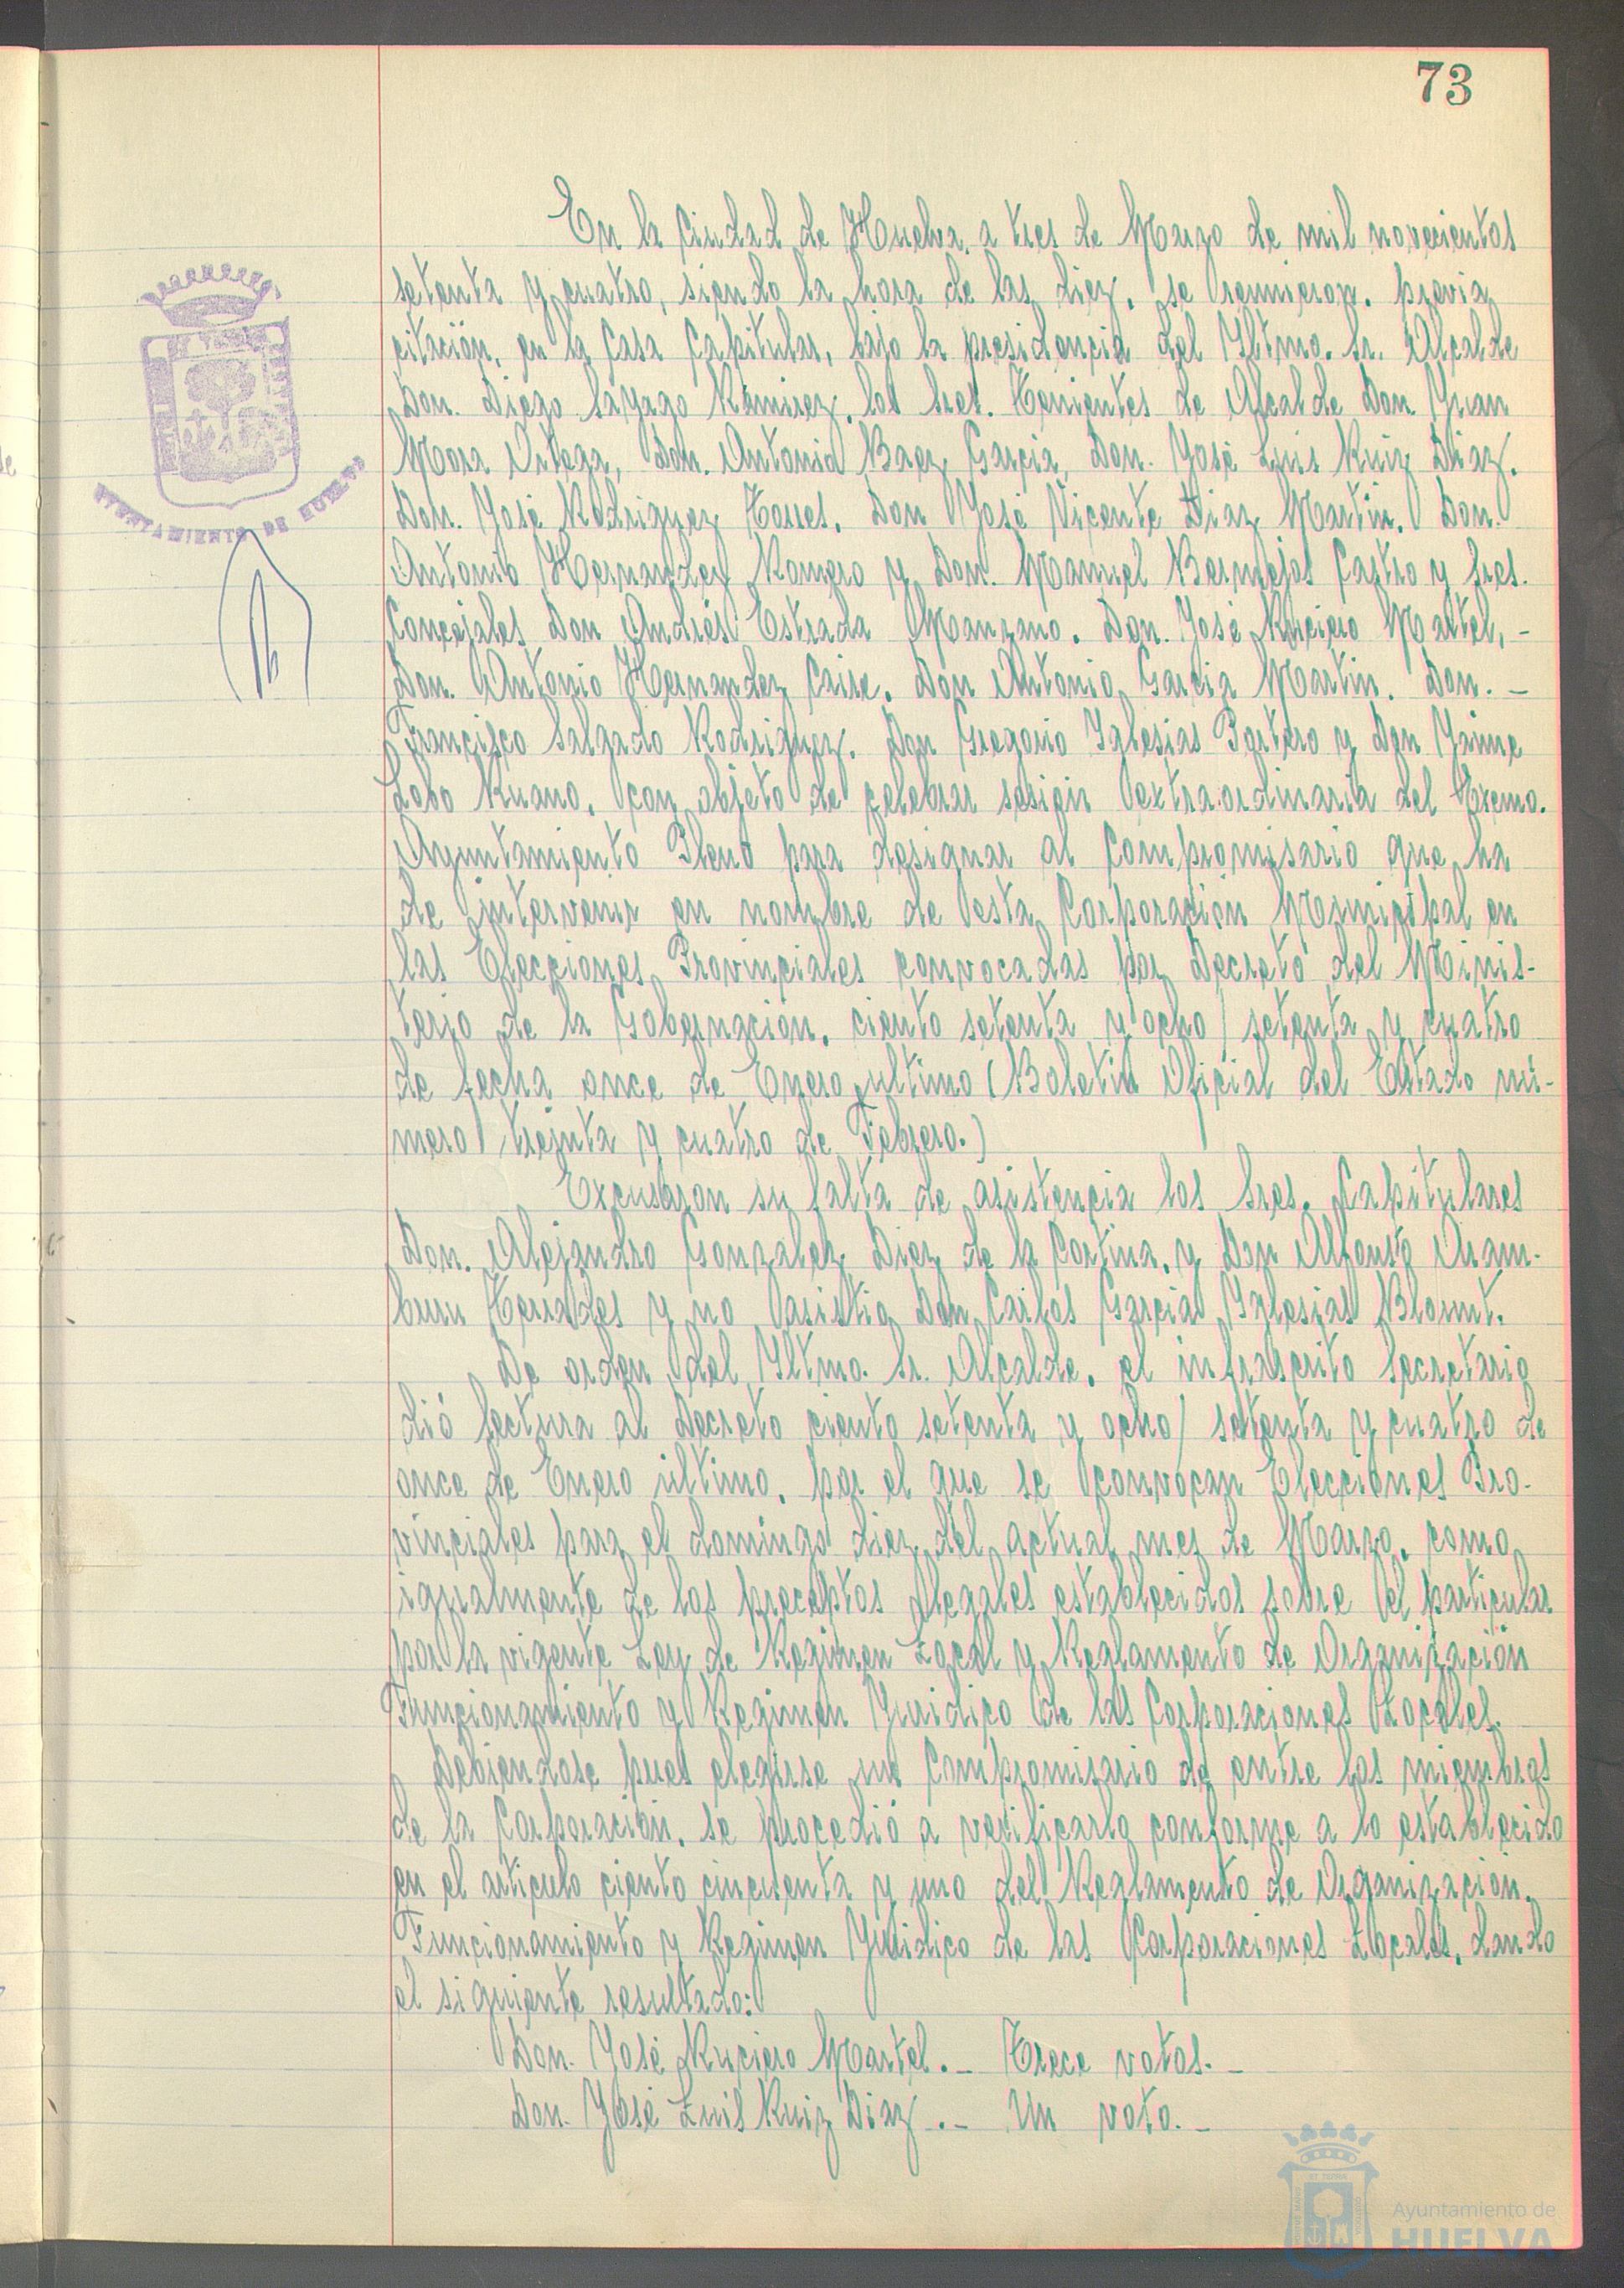 73
En la Ciudad de Huelva, a tres de Marzo de mil novecientos
setenta y cuatro, siendo la hora de las diez, se reunieron, previa
citación, en la Casa Capitular, bajo la presidencia del Yltmo. Sr. Alcalde
Don. Diego Sayago Ramirez, los Sres. Tenientes de Alcalde Don Juan
Mora Ortega, Don. Antonio Baez Garcia, Don. José Luis Ruiz Diaz,
Don. José Rodriguez Torres, Don José Vicente Diaz Martin, Don.
Antonio Hernandez Romero y Don. Manuel Bermejos Castro y Sres.
Concejales Don Andrés Estrada Manzano, Don. José Ruciero Martel, -
Don. Antonio Hernandez Caire, Don Antonio Garcia Martin, Don. -
Francisco Salgado Rodriguez, Don Gregorio Yglesias Portero y Don Jaime
Lobo Ruano, con objeto de celebrar sesión extraordinaria del Excmo.
Ayuntamiento Pleno para designar al Compromisario que ha
de intervenir en nombre de esta Corporación Municipal en
las Elecciones Provinciales convocadas por Decreto del Minis-
terio de la Gobernación, ciento setenta y ocho / setenta y cuatro
de fecha once de Enero ultimo (Boletin Oficial del Estado nú-
mero treinta y cuatro de Febrero.)
Excusaron su falta de asistencia los Sres. Capitulares
Don. Alejandro Gonzalez Diez de la Cortina, y Don Alfonso Aram-
buru Terrades y no asistio Don Carlos Garcia Yglesias Blount.
De orden del Yltmo. Sr. Alcalde, el infrascrito Secretario
dió lectura al Decreto ciento setenta y ocho / setenta y cuatro de
once de Enero último, por el que se convocan Elecciones Pro-
vinciales para el domingo diez del actual mes de Marzo, como
igualmente de los preceptos legales establecidos sobre el particular
por la vigente Ley de Regimen Local y Reglamento de Organización
Funcionamiento y Regimen Juridico de las Corporaciones Locales.
Debiendose pues elegirse un Compromisario de entre los miembros
de la Corporación, se procedió a verificarlo conforme a lo establecido
en el articulo ciento cincuenta y uno del Reglamento de Organización,
Funcionamiento y Regimen Juridico de las Corporaciones Locales, dando
el siguiente resultado:
Don. José Ruciero Martel. - Trece votos. -
Don. José Luis Ruiz Diaz. - Un voto. -
AYUNTAMIENTO DE HUELVA
Ayuntamiento de
HUELVA